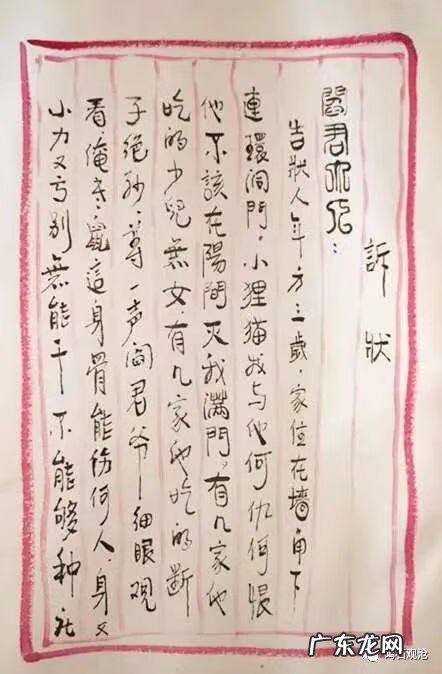 訴狀
閻君:
告狀人年方三歲,家住在墻角下
連環洞門,小狸猫我与他何仇何恨
他不該在陽間灭我满門,有几家他
吃的少兒無女,有几家他吃的断
子绝孙,尊一声阎君爷细眼观
看,俺老鼠這身骨能伤何人,身又
小力又亏别無能干不能够种
广东龙网